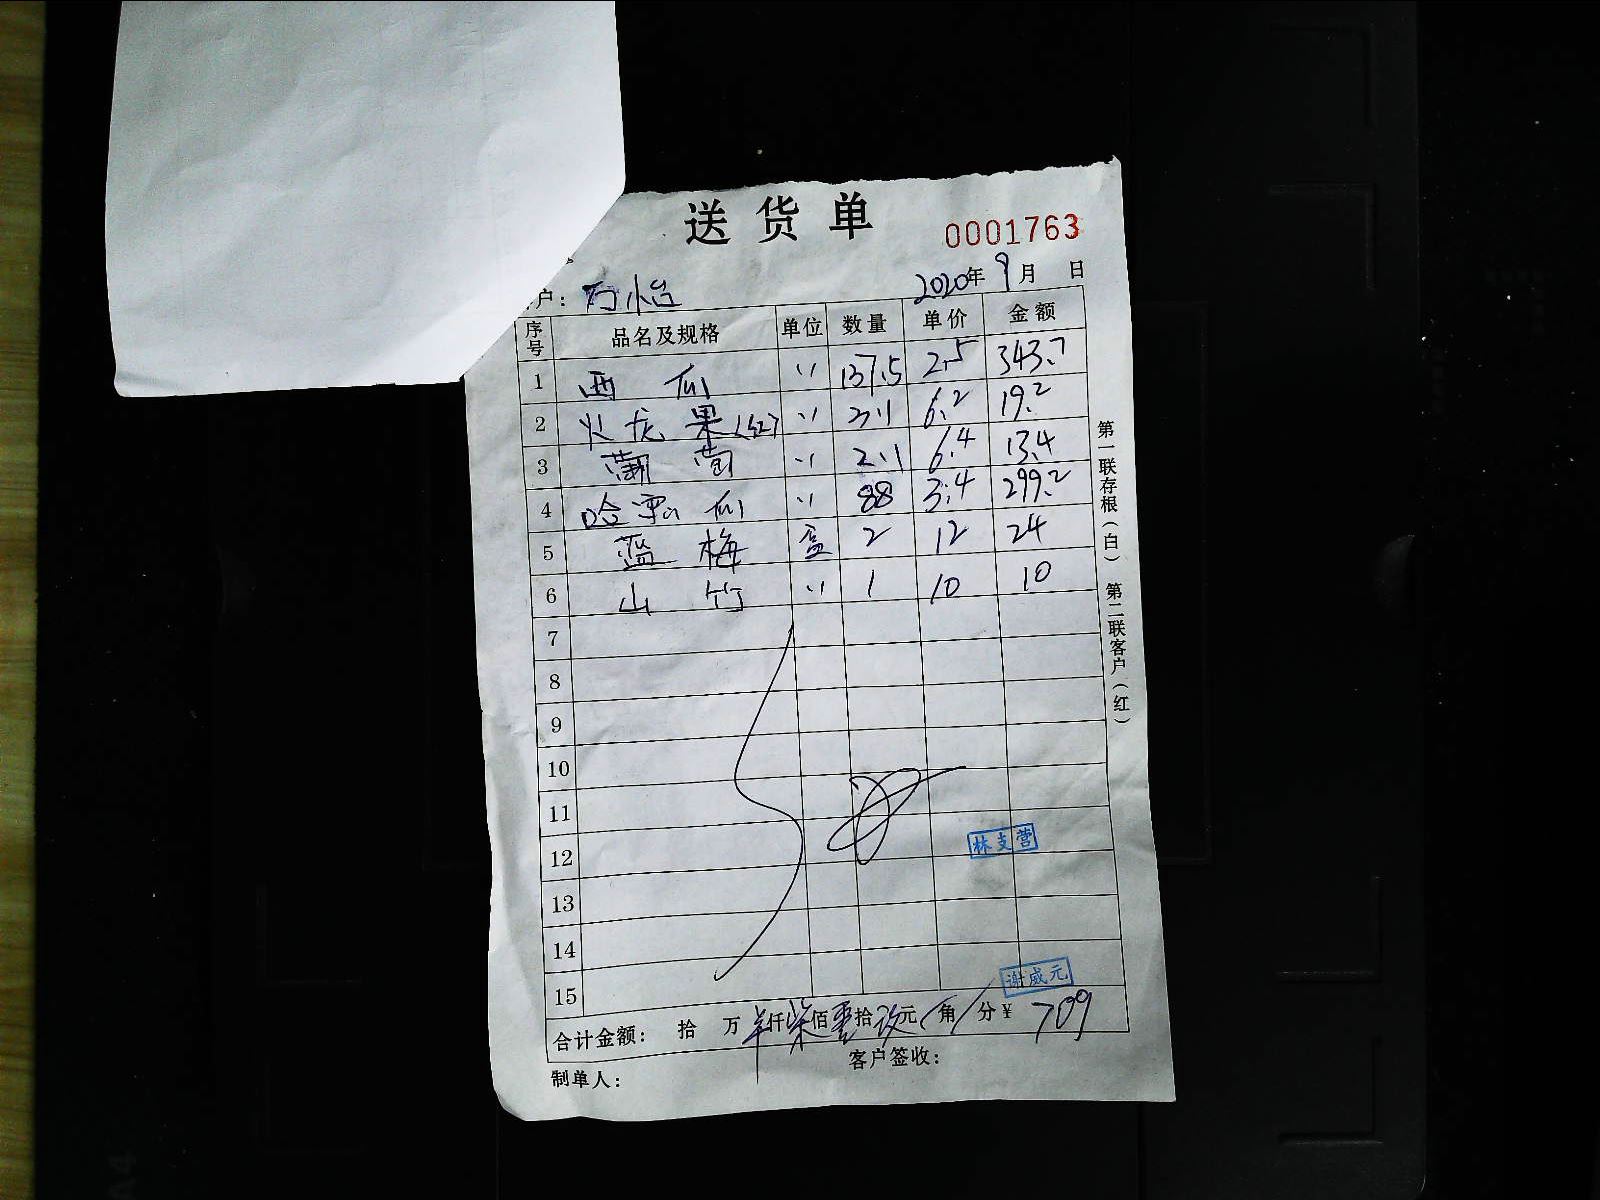 送货单
0001763
户：万怡 2020年9月 日
序号 品名及规格 单位 数量 单价 金额
1 西瓜 〃 137.5 2.5 343.7
2 火龙果(红) 〃 3.1 6.2 19.2
3 葡萄 〃 2.1 6.4 13.4
4 哈密瓜 〃 88 3.4 299.2
5 蓝梅 盒 2 12 24
6 山竹 〃 1 10 10
7
8
9
10
11
12
林支营
13
14
15
谢威元
合计金额： 拾 万 仟柒佰零拾 元/角/分 ¥709
制单人： 客户签收：
第一联存根（白） 第二联客户（红）